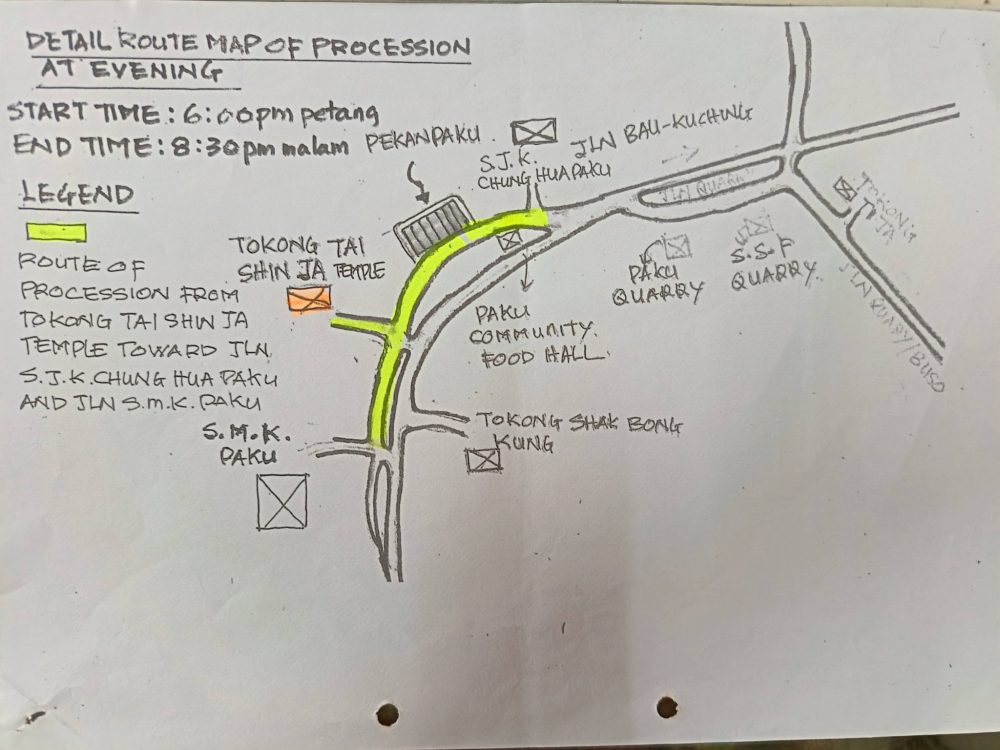 DETAIL ROUTE MAP OF PROCESSION
AT EVENING
START TIME: 6:00pm petang
END TIME: 8:30pm malam
LEGEND
ROUTE OF
PROCESSION FROM
TOKONG TAI SHIN JA
TEMPLE TOWARD JLN
S.J.K. CHUNG HUA PAKU
AND JLN S.M.K. PAKU
PEKAN PAKU
S.J.K.
CHUNG HUA PAKU
JLN BAU-KUCHING
TOKONG TAI
SHIN JA TEMPLE
JLN QUARRY
TOKONG
JA
PAKU
QUARRY
S.S.F
QUARRY
PAKU
COMMUNITY
FOOD HALL
TOKONG SHAK BONG
KUNG
S.M.K.
PAKU